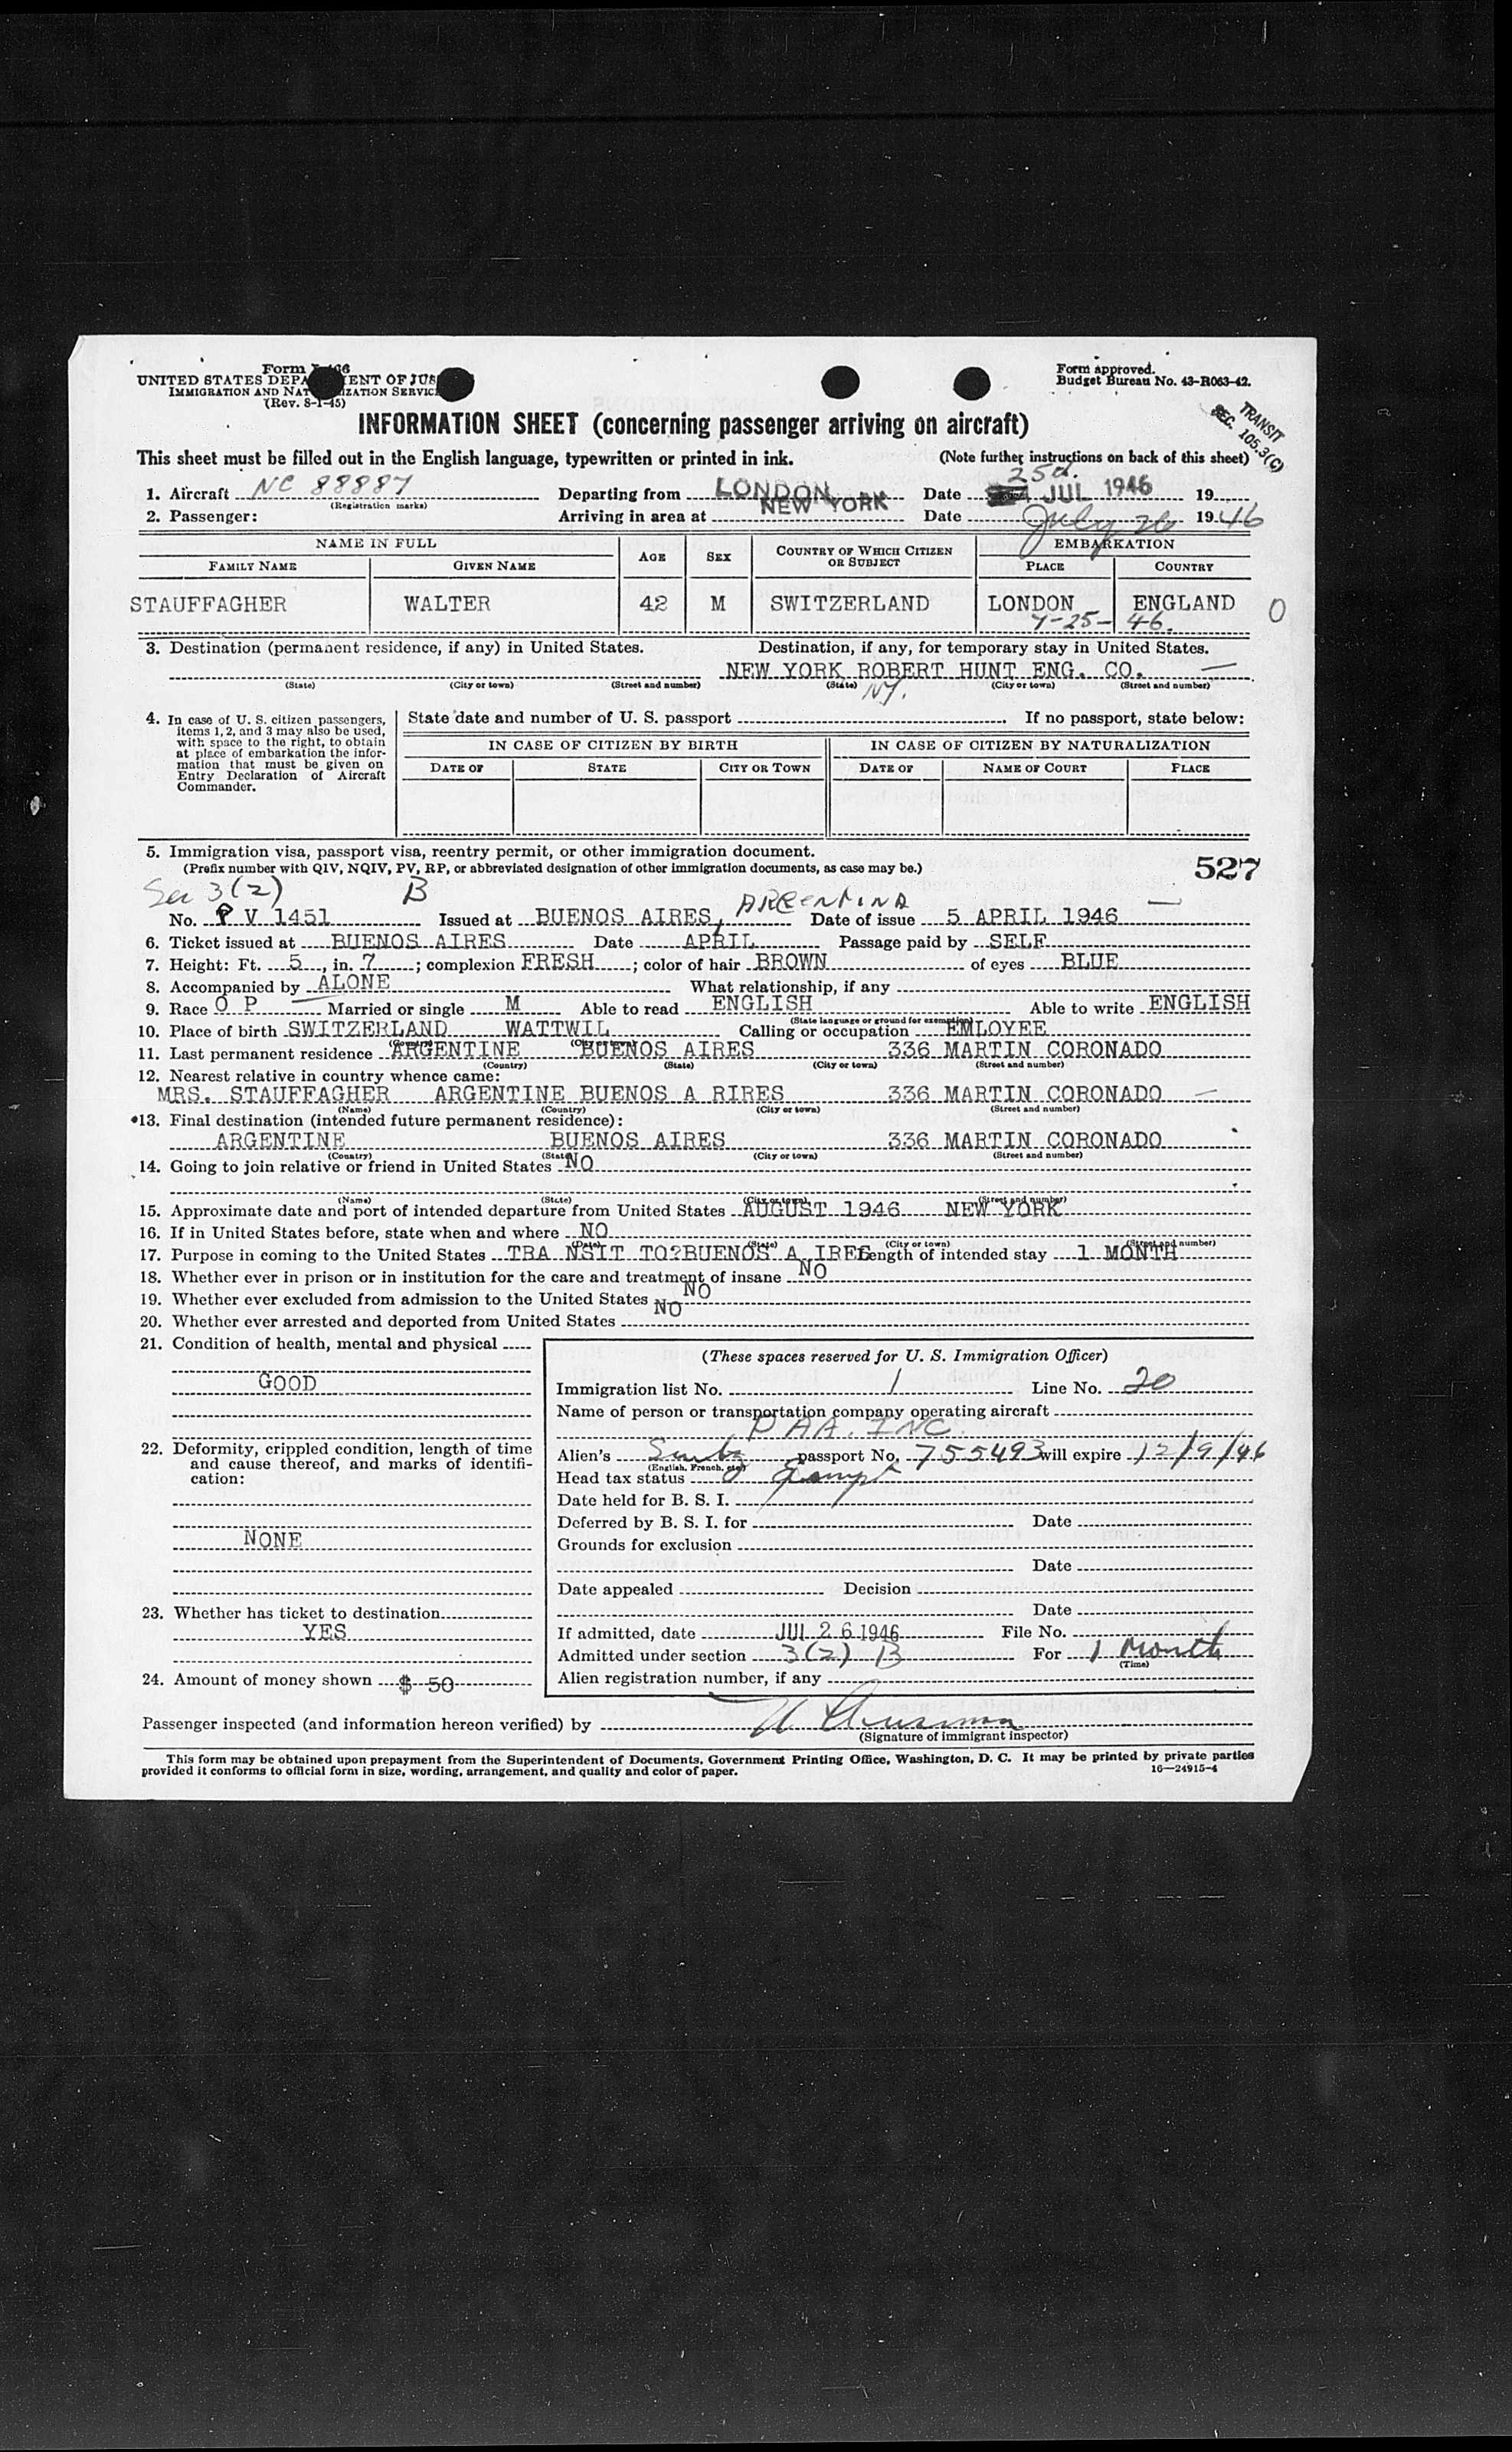 Form
UNITED STATES DEPA ENT OF JUS
IMMIGRATION AND NAT IZATION SERVIC
(Rev. 8-1-45)
Form approved.
Budget Bureau No. 43-R063-42.
TRANSIT
SEC. 105.3(C)
INFORMATION SHEET (concerning passenger arriving on aircraft)
This sheet must be filled out in the English language, typewritten or printed in ink. (Note further instructions on back of this sheet)
25d.
1. Aircraft NC 88887 Departing from LONDON Date JUL 1946 19
(Registration marks)
2. Passenger: Arriving in area at NEW YORK Date July 26 1946
NAME IN FULL AGE SEX COUNTRY OF WHICH CITIZEN OR SUBJECT EMBARKATION
FAMILY NAME GIVEN NAME PLACE COUNTRY
STAUFFAGHER WALTER 42 M SWITZERLAND LONDON ENGLAND O
7-25-46.
3. Destination (permanent residence, if any) in United States. Destination, if any, for temporary stay in United States.
NEW YORK ROBERT HUNT ENG. CO.
(State) (City or town) (Street and number) (State) NY. (City or town) (Street and number)
4. In case of U. S. citizen passengers, items 1, 2, and 3 may also be used, with space to the right, to obtain at place of embarkation the information that must be given on Entry Declaration of Aircraft Commander.
State date and number of U. S. passport If no passport, state below:
IN CASE OF CITIZEN BY BIRTH IN CASE OF CITIZEN BY NATURALIZATION
DATE OF STATE CITY OR TOWN DATE OF NAME OF COURT PLACE
5. Immigration visa, passport visa, reentry permit, or other immigration document.
(Prefix number with QIV, NQIV, PV, RP, or abbreviated designation of other immigration documents, as case may be.) 527
Sec 3(2) B ARGENTINA
No. P V 1451 Issued at BUENOS AIRES, Date of issue 5 APRIL 1946
6. Ticket issued at BUENOS AIRES Date APRIL Passage paid by SELF
7. Height: Ft. 5, in. 7; complexion FRESH; color of hair BROWN of eyes BLUE
8. Accompanied by ALONE What relationship, if any
9. Race O P Married or single M Able to read ENGLISH Able to write ENGLISH
(State language or ground for exemption)
10. Place of birth SWITZERLAND WATTWIL Calling or occupation EMLOYEE
(Country) (City or town)
11. Last permanent residence ARGENTINE BUENOS AIRES 336 MARTIN CORONADO
(Country) (State) (City or town) (Street and number)
12. Nearest relative in country whence came:
MRS. STAUFFAGHER ARGENTINE BUENOS A RIRES 336 MARTIN CORONADO
(Name) (Country) (City or town) (Street and number)
13. Final destination (intended future permanent residence):
ARGENTINE BUENOS AIRES 336 MARTIN CORONADO
(Country) (State) (City or town) (Street and number)
14. Going to join relative or friend in United States NO
(Name) (State) (City or town) (Street and number)
15. Approximate date and port of intended departure from United States AUGUST 1946 NEW YORK
16. If in United States before, state when and where NO
(Date) (State) (City or town) (Street and number)
17. Purpose in coming to the United States TRA NSIT TO?BUENOS A IRES Length of intended stay 1 MONTH
18. Whether ever in prison or in institution for the care and treatment of insane NO
19. Whether ever excluded from admission to the United States NO
20. Whether ever arrested and deported from United States NO
21. Condition of health, mental and physical
GOOD
22. Deformity, crippled condition, length of time and cause thereof, and marks of identification:
NONE
23. Whether has ticket to destination
YES
24. Amount of money shown $ 50
(These spaces reserved for U. S. Immigration Officer)
Immigration list No. 1 Line No. 20
Name of person or transportation company operating aircraft
PAA. INC.
Alien's passport No. 755493 will expire 12/9/46
(English, French, etc.)
Head tax status Exempt
Date held for B. S. I.
Deferred by B. S. I. for Date
Grounds for exclusion
Date
Date appealed Decision
Date
If admitted, date JUL 26 1946 File No.
Admitted under section 3(2) B For 1 Month
(Time)
Alien registration number, if any
Passenger inspected (and information hereon verified) by
(Signature of immigrant inspector)
This form may be obtained upon prepayment from the Superintendent of Documents, Government Printing Office, Washington, D. C. It may be printed by private parties
provided it conforms to official form in size, wording, arrangement, and quality and color of paper. 16—24915-4